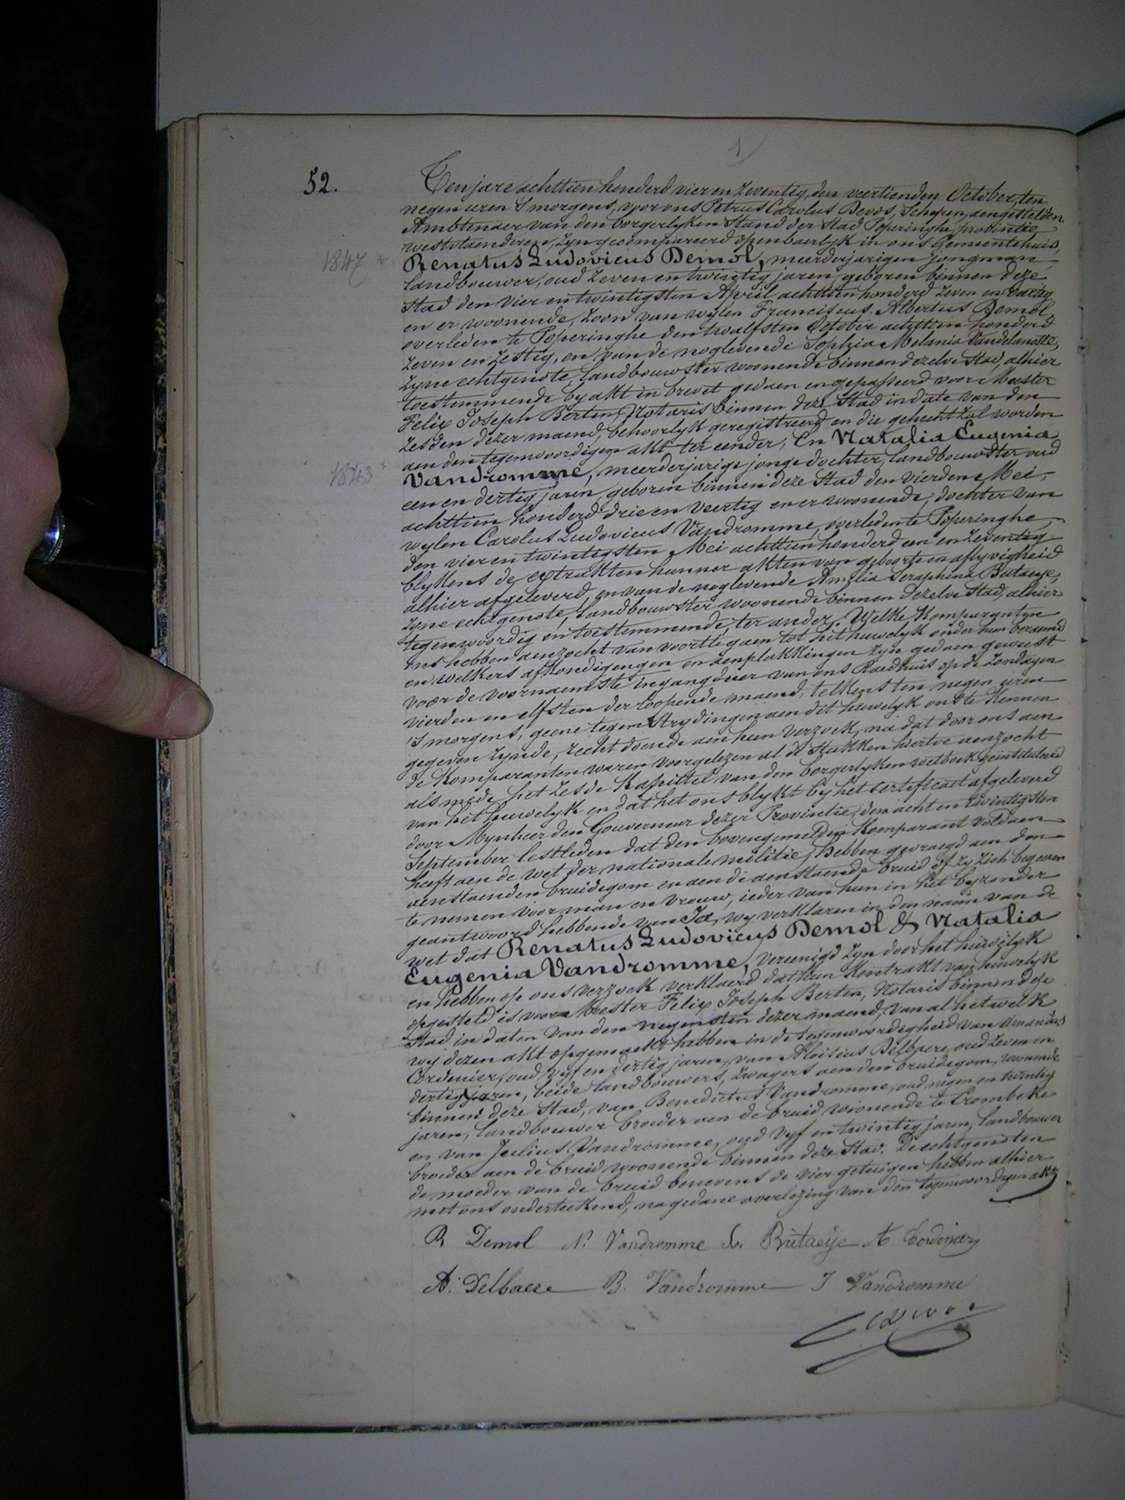 52.
Ten jare achttien honderd vier en zeventig, den veertienden October, ten
negen uren 's morgens, voor ons Petrus Carolus Devos, Schepen, aengestelden
Ambtenaer van den borgerlyken Stand der Stad Poperinghe, provintie
westvlaenderen, zyn gecompareerd openbaerlyk in ons Gemeentehuis,
1847 Renatus Ludovicus Demol, meerderjarigen jongman,
landbouwer, oud zeven en twintig jaren, geboren binnen deze
Stad den vier en twintigsten April achttien honderd zeven en veertig
en er woonende, zoon van wylen Franciscus Albertus Demol
overleden te Poperinghe den twalfsten October achttien honderd
zeven en zestig, en van de noglevende Sophia Melania Vandelanotte,
zyne echtgenote, landbouwster woonende binnen dezelve Stad, alhier
toestemmende by akt in brevet gedaen en gepasseerd voor Meester
Felix Joseph Berten, Notaris binnen deze Stad in date van den
zesden dezer maend, behoorlyk geregistreerd en die gehecht zal worden
aen den tegenwoordigen akt, ter eender; En Natalia Eugenia
1843 Vandromme, meerderjarige jonge dochter, landbouwster oud
een en dertig jaren, geboren binnen deze Stad den vierden Mei
achttien honderd drie en veertig en er woonende, dochter van
wylen Carolus Ludovicus Vandromme, overleden te Poperinghe
den vier en twintigsten Mei achttien honderd een en zeventig
blykens de extrakten hunner akten van geboorte en aflyvigheid
alhier afgeleverd, en van de noglevende Amelia Seraphina Butaeye,
zyne echtgenote, landbouwster woonende binnen dezelve Stad, alhier
tegenwoordig en toestemmende, ter ander. Welke Komparanten
ons hebben aenzocht van voort te gaen tot het huwelyk onder hun beraemd
en welkers afkondigingen en aenplakkingen zyn gedaen geweest
voor de voornaemste ingangdeur van ons Raedhuis op de Zondagen
vierden en elfsten der loopende maend, telkens ten negen uren
's morgens, geene tegenstrydingen aen dit huwelyk ons te kennen
gegeven zynde, recht doende aen hun verzoek, na dat door ons aen
de Komparanten waren voorgelezen al de Stukken hiertoe aenzocht
als mede het zesde Kapittel van den borgerlyken wetboek geintituleerd
van het huwelyk en dat het ons blykt by het certificaet afgeleverd
door Mynheer den Gouverneur dezer Provintie, den acht en twintigsten
September lestleden dat den bovengemelden Komparant voldaen
heeft aen de wet der nationale militie, Hebben gevraegd aen den
aenstaenden bruidegom en aen de aenstaende bruid of zy zich begeeren
te nemen voor man en vrouw, ieder van hun in het byzonder
geantwoord hebbende van Ja, wy verklaren in den naem van de
wet dat Renatus Ludovicus Demol & Natalia
Eugenia Vandromme, vereenigd zyn door het huwelyk
en hebben op ons verzoek verklaerd dat hun kontrakt van huwelyk
opgesteld is voor Meester Felix Joseph Berten, Notaris binnen deze
Stad in daten van den negensten dezer maend, van al hetwelk
wy dezen akt opgemaekt hebben in de tegenwoordigheid van Amandus
Cordenier, oud vyf en dertig jaren, van Aloisius Delbaere, oud zeven en
dertig jaren, beide landbouwers, zwagers aen den bruidegom, woonende
binnen deze Stad, van Benedictus Vandromme, oud negen en twintig
jaren, landbouwer broeder aen de bruid woonende te Crombeke
en van Julius Vandromme, oud vyf en twintig jaren, landbouwer
broeder aen de bruid woonende binnen deze Stad. De echtgenoten
de moeder van de bruid benevens de vier getuigen hebben alhier
met ons onderteekend, na gedane overlezing van den tegenwoordigen akt.
R Demol N. Vandromme Butaeye A Cordenier
A. Delbaere B. Vandromme J Vandromme